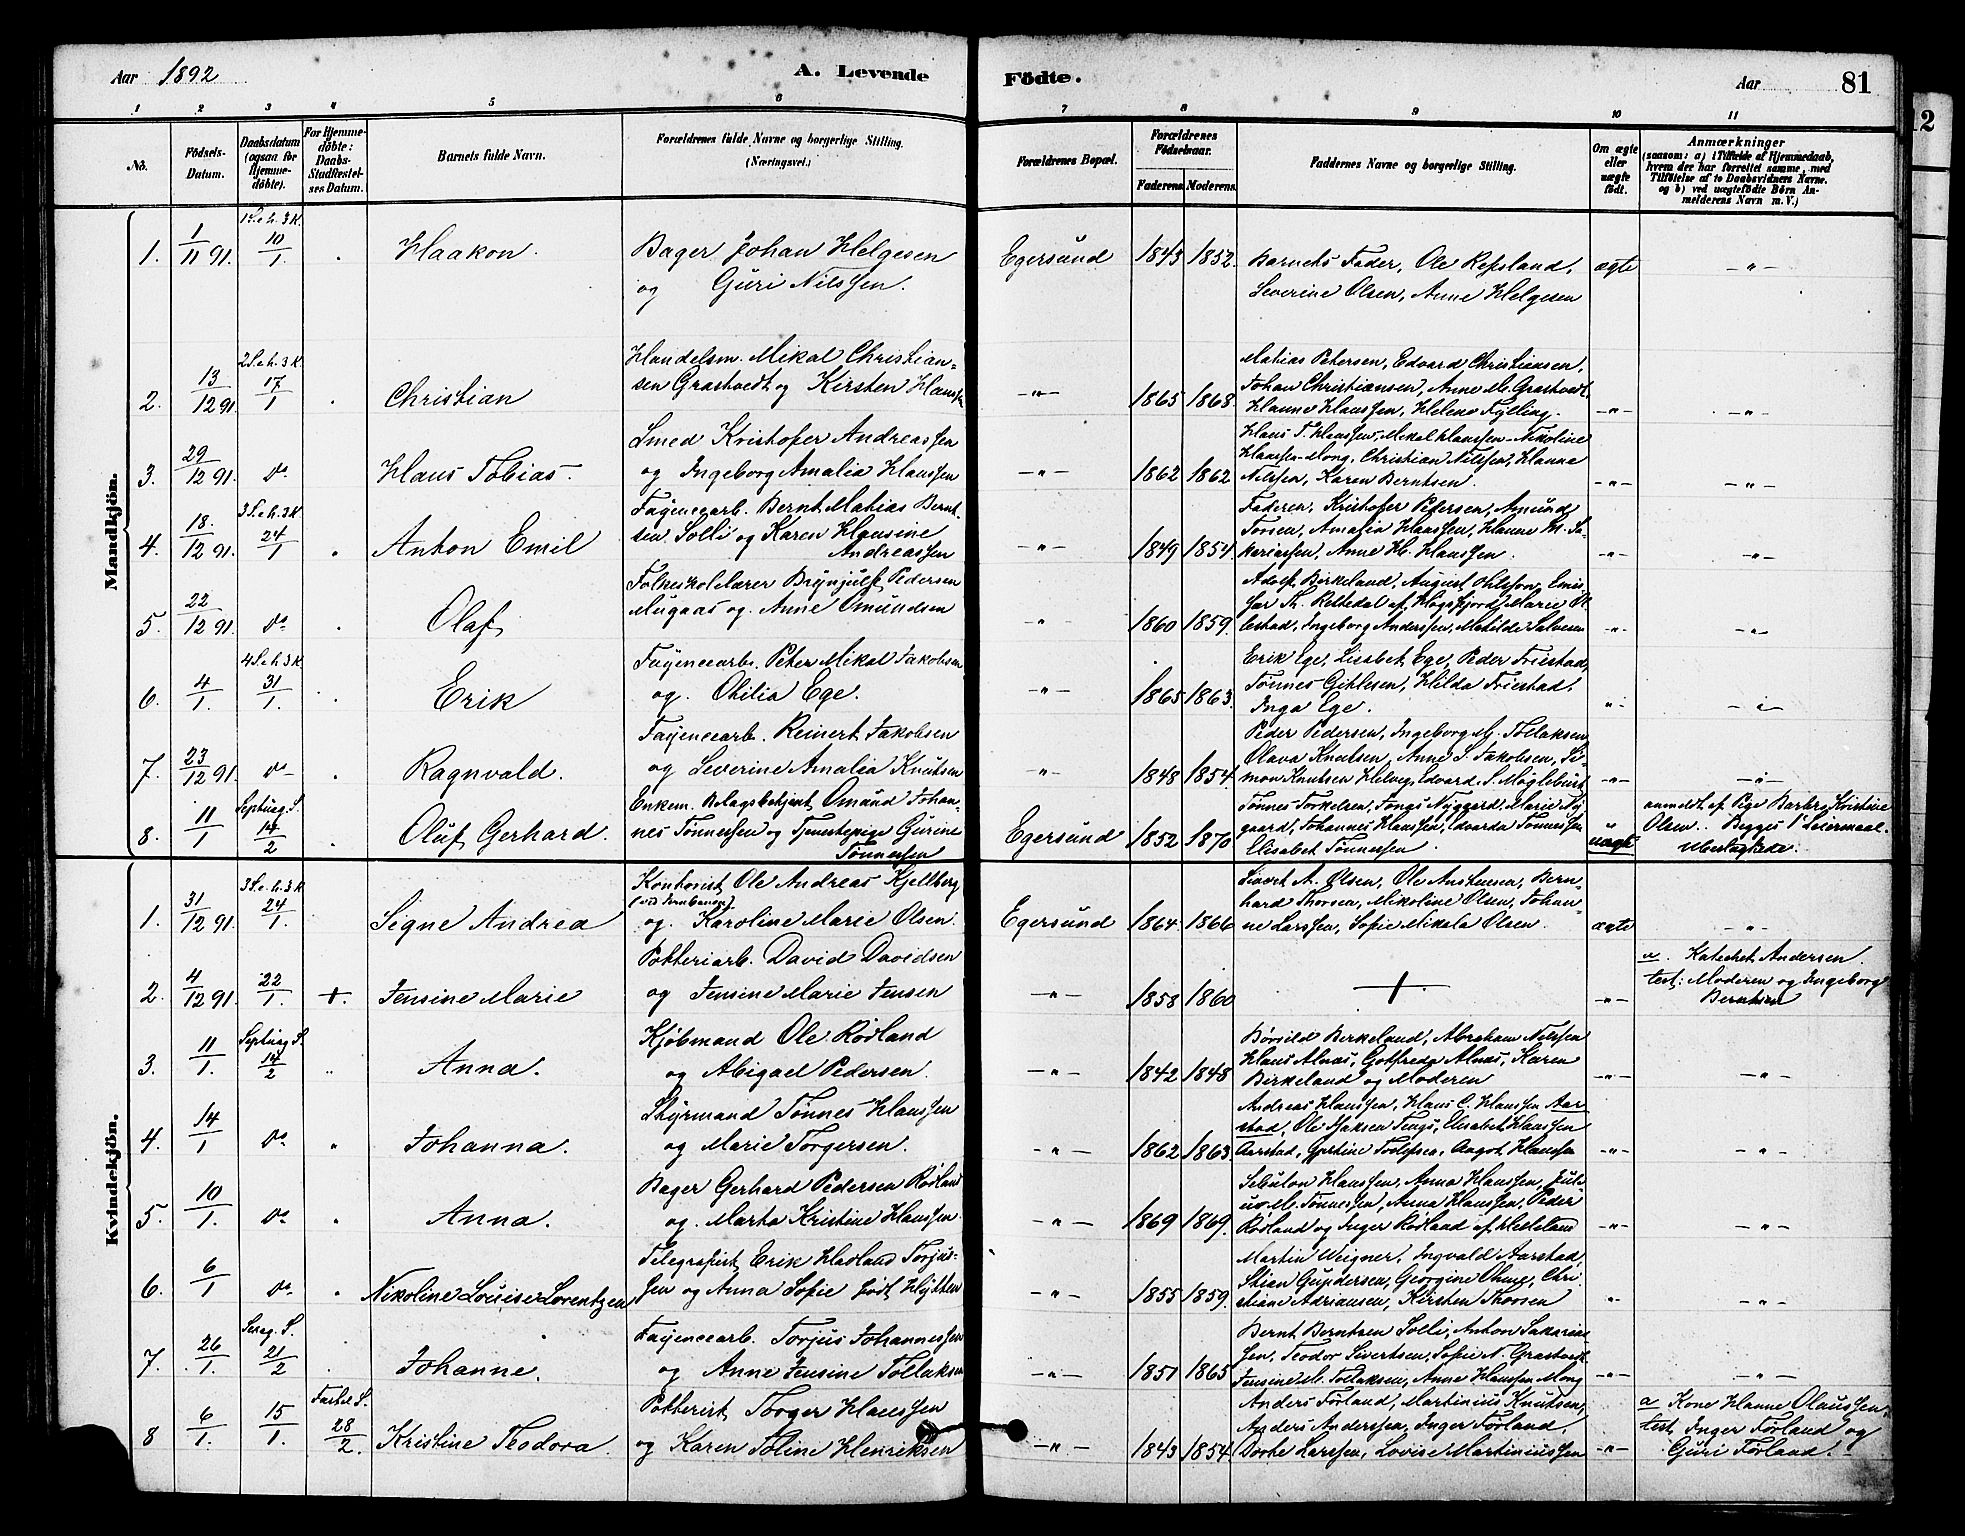 Aar 1892
A. Levende
Födte.
Aar
81
12
1 2 3 4 5 6 7 8 9 10 11
No.
Födsels-Datum.
Daabsdatum (ogsaa for Hjemme-döbte).
For Hjemme-döbte: Daabs-Stadfæstel-ses Datum.
Barnets fulde Navn.
Forældrenes fulde Navne og borgerlige Stilling. (Næringsvei.)
Forældrenes Bopæl.
Forældrenes Födselsaar.
Faderens. Moderens.
Faddernes Navne og borgerlige Stilling.
Om ægte eller uægte födt.
Anmærkninger
(saasom: a) i Tilfælde af Hjemmedaab,
hvem der har forrettet samme, med
Tilföielse af to Daabsvidners Navne.
og b) ved uægtefödte Börn An-
melderens Navn m. V.)
Mandkjön.
1. 1/11 91. 1 S. e. h. 3 K. 10/1. Haakon. Bager Johan Helgesen
og Guri Nilssen.
Egersund 1843 1852. Barnets Fader, Ole Repsland,
Severine Olsen, Anne Helgesen
ægte -"-
2. 13/12 91. 2 S. e. h. 3 K. 17/1 Christian Handelsm. Mikal Christian-
sen Grastvedt og Kirsten Hanssen
-"- 1865 1868. Matias Petersen, Edvard Christiansen,
Johan Christiansen, Anne M. Grastvedt
Hanne Hanssen, Helene Fylling.
-"- -"-
3. 29/12 91. do Hans Tobias. Smed Kristofer Andreassen
og Ingeborg Amalia Hanssen
-"- 1862 1862 Hans T. Hanssen, Mikal Hanssen, Nikoline
Hanssen-Mong, Christian Nilssen, Hanne
Nilssen, Karen Berntsen.
-"- -"-
4. 18/12 91. 3 S. e. h. 3 K 24/1 Anton Emil Fayencearb. Bernt Matias Bernt-
sen Solli og Karen Hansine
Andreassen
-"- 1849 1854. Faderen, Kristofer Pedersen, Amund
Torsen, Amalia Hanssen, Hanne M. Sa-
kariassen, Anne H. Hanssen.
-"- -"-
5. 22/12 91. do Olaf Folkeskolelærer Brynjulf Pedersen
Mugaas og Anne Omundsen
-"- 1860 1859. Adolf Birkeland, August Ohlsson, Emis-
sær Th. Rettedal af Høgsfjord, Marie O-
lestad, Ingeborg Anderssen, Matilde Salvesen
-"- -"-
6. 4/1. 4 S. e. h. 3 K. 31/1. Erik Fayencearb. Peter Mikal Jakobsen
og Othilia Ege.
-"- 1865 1863. Erik Ege, Lisabet Ege, Peder Friestad,
Tønnes Gihlesen, Hilda Friestad,
Inga Ege.
-"- -"-
7. 23/12 91. do Ragnvald. Fayencearb. Reinert Jakobsen
og Severine Amalia Knutsen
-"- 1848 1854. Peder Pedersen, Ingeborg M. Tollaksen
Olava Knutsen, Anne S. Jakobsen, Si-
mon Knutsen Helvig, Edvard S. Møglebust
-"- -"-
8. 11/1 Septuag. S. 14/2 Oluf Gerhard. Enkem. Bolagsbetjent Omund Johan-
nes Tønnessen og Tjenestepige Gurine
Tønnessen
Egersund 1852 1870. Tønnes Torkelsen, Jonas Nygaard, Marie Ny-
gaard, Johannes Hanssen, Edvarda Tønnessen
Elisabet Tønnessen.
uægte anmeldt af Pige Barbro Kristine
Olsen. Begges 1' Leiermaal.
Ubeslægtede.
Kvindekjön.
1. 31/12 91. 3 S. e. h. 3 K 24/1. Signe Andrea Kontorist Ole Andreas Kjellberg
(ved Jernbanen)
og Karoline Marie Olsen.
Egersund 1864. 1866 Sivert A. Olsen, Ole Anstensen, Bern-
hard Thorsen, Nikoline Olsen, Johan-
ne Larssen, Sofie Mikala Olsen.
ægte -"-
2. 4/12 91. 22/1. +. Jensine Marie Potteriarb. David Davidsen
og Jensine Marie Jensen
-"- 1858 1860 + -"-
a. Katechet Andersen.
test: Moderen og Ingeborg
Berntsen
3. 11/1. Septuag S. 14/2 Anna. Kjøbmand Ole Rødland
og Abigael Pedersen.
-"- 1842 1848 Børsild Birkeland, Abraham Nilssen
Hans Alnæs, Gotfreda Alnæs, Karen
Birkeland og Moderen
-"- -"-
4. 14/1 do Johanna. Styrmand Tønnes Hanssen
og Marie Torgersen.
-"- 1862 1863. Andreas Hanssen, Hans C. Hanssen Aar-
stad, Ole Isaksen Tengs, Elisabet Hanssen
Aarstad, Tollefsen, Aagot Hanssen
-"- -"-
5. 10/1. do Anna. Bager Gerhard Pedersen Rødland
og Marta Kristine Hanssen
-"- 1869 1869. Sebulon Hanssen, Anna Hanssen, Juli-
us M. Tønnessen, Anna Hanssen, Peder
Rødland og Inger Rødland af Helleland
-"- -"-
6. 6/1 do Nikoline Louise Lorentzen Telegrafist Erik Hadland Torjus-
sen og Anna Sofie født Hytten
-"- 1855 1859. Martin Weigner, Ingvald Aarstad,
Stian Gundersen, Georgine Ohme, Chri-
stiane Adriansen, Kirsten Thorsen
-"- -"-
7. 26/1. Sexag. S. 21/2 Johanne. Fayencearb. Torjus Johannessen
og Anne Jensine Tollaksen
-"- 1851 1865 Bernt Berntsen Solli, Anton Sakarias-
sen, Teodor Sivertsen, Sofie N. Grastvedt
Jensine M. Tollaksen, Anne Hanssen Mong
-"- -"-
8 6/1. 15/1. Fastel S. 28/2. Kristine Teodora. Potterist Torger Hanssen
og Karen Toline Henriksen
-"- 1843 1854. AndersFørland, Martinius Knutsen,
Anders Anderssen, Inger Førland,
Dorthe Larssen, Lovise Martiniussen
-"- a Kone Hanne Olaussen,
test. Inger Førland og
Guri Førland.